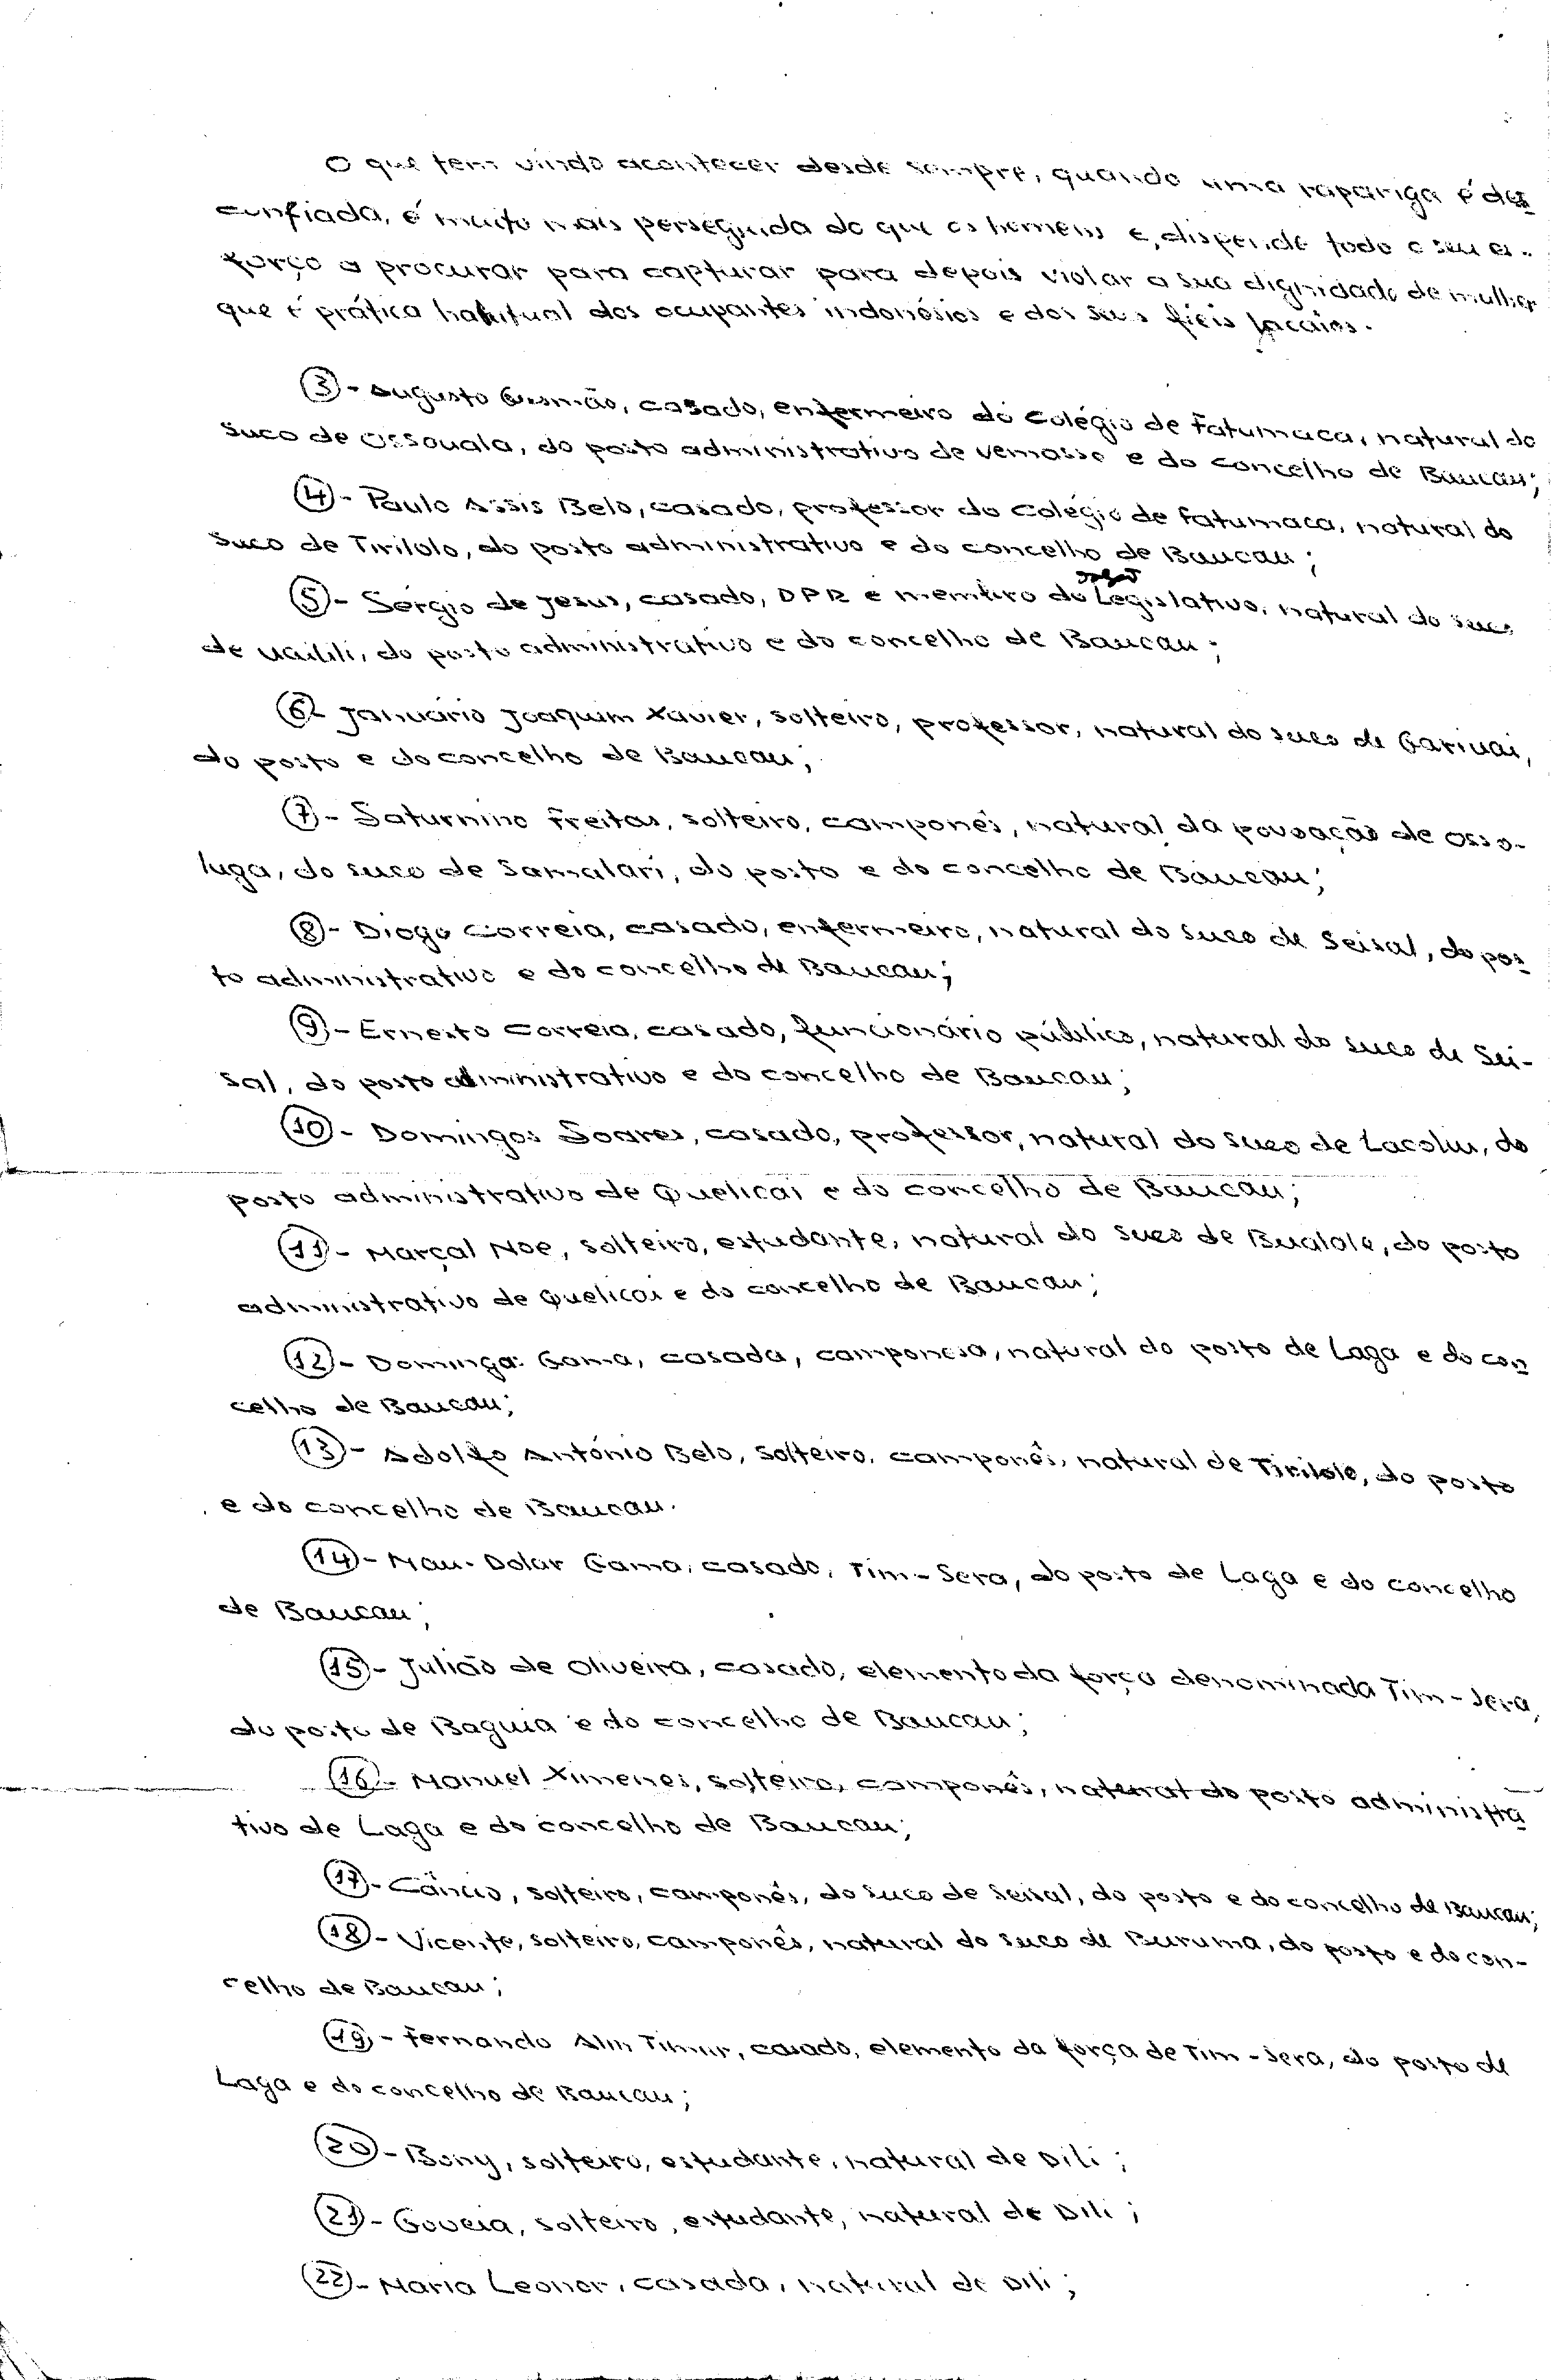 O que tem vindo acontecer desde sempre, quando uma rapariga é des
confiada, é muito mais perseguida do que os homens e, dispende todo o seu es-
forço a procurar para capturar para depois violar a sua dignidade de mulher
que é prática habitual dos ocupantes indonésios e dos seus fiéis lacaios.
③- Augusto Gusmão, casado, enfermeiro do Colégio de Fatumaca, natural do
suco de Ossouala, do posto administrativo de Vemasse e do concelho de Baucau;
④- Paulo Assis Belo, casado, professor do Colégio de Fatumaca, natural do
suco de Tirilolo, do posto administrativo e do concelho de Baucau;
⑤- Sérgio de Jesus, casado, DPR e membro do Legislativo, natural do suco
de Uailili, do posto administrativo e do concelho de Baucau;
⑥- Januário Joaquim Xavier, solteiro, professor, natural do suco de Gariuai,
do posto e do concelho de Baucau;
⑦- Saturnino Freitas, solteiro, camponês, natural da povoação de Osso-
luga, do suco de Samalari, do posto e do concelho de Baucau;
⑧- Diogo Correia, casado, enfermeiro, natural do suco de Seisal, do pos
to administrativo e do concelho de Baucau;
⑨- Ernesto Correia, casado, funcionário público, natural do suco de Sei-
sal, do posto administrativo e do concelho de Baucau;
⑩- Domingos Soares, casado, professor, natural do suco de Lacoliu, do
posto administrativo de Quelicai e do concelho de Baucau;
⑪- Marçal Noe, solteiro, estudante, natural do suco de Bualale, do posto
administrativo de Quelicai e do concelho de Baucau;
⑫- Domingas Gama, casada, camponesa, natural do posto de Laga e do con
celho de Baucau;
⑬- Adolfo António Belo, solteiro, camponês, natural de Tirilolo, do posto
e do concelho de Baucau.
⑭- Mau-Dolar Gama, casado, Tim-Sera, do posto de Laga e do concelho
de Baucau;
⑮- Julião de Oliveira, casado, elemento da força denominada Tim-Sera,
do posto de Baguia e do concelho de Baucau;
⑯- Manuel Ximenes, solteiro, camponês, natural do posto administra
tivo de Laga e do concelho de Baucau;
⑰- Câncio, solteiro, camponês, do suco de Seisal, do posto e do concelho de Baucau;
⑱- Vicente, solteiro, camponês, natural do suco de Buruma, do posto e do con-
celho de Baucau;
⑲- Fernando Alin Timur, casado, elemento da força de Tim-Sera, do posto de
Laga e do concelho de Baucau;
⑳- Bony, solteiro, estudante, natural de Dili;
㉑- Gouveia, solteiro, estudante, natural de Dili;
㉒- Maria Leonor, casada, natural de Dili;